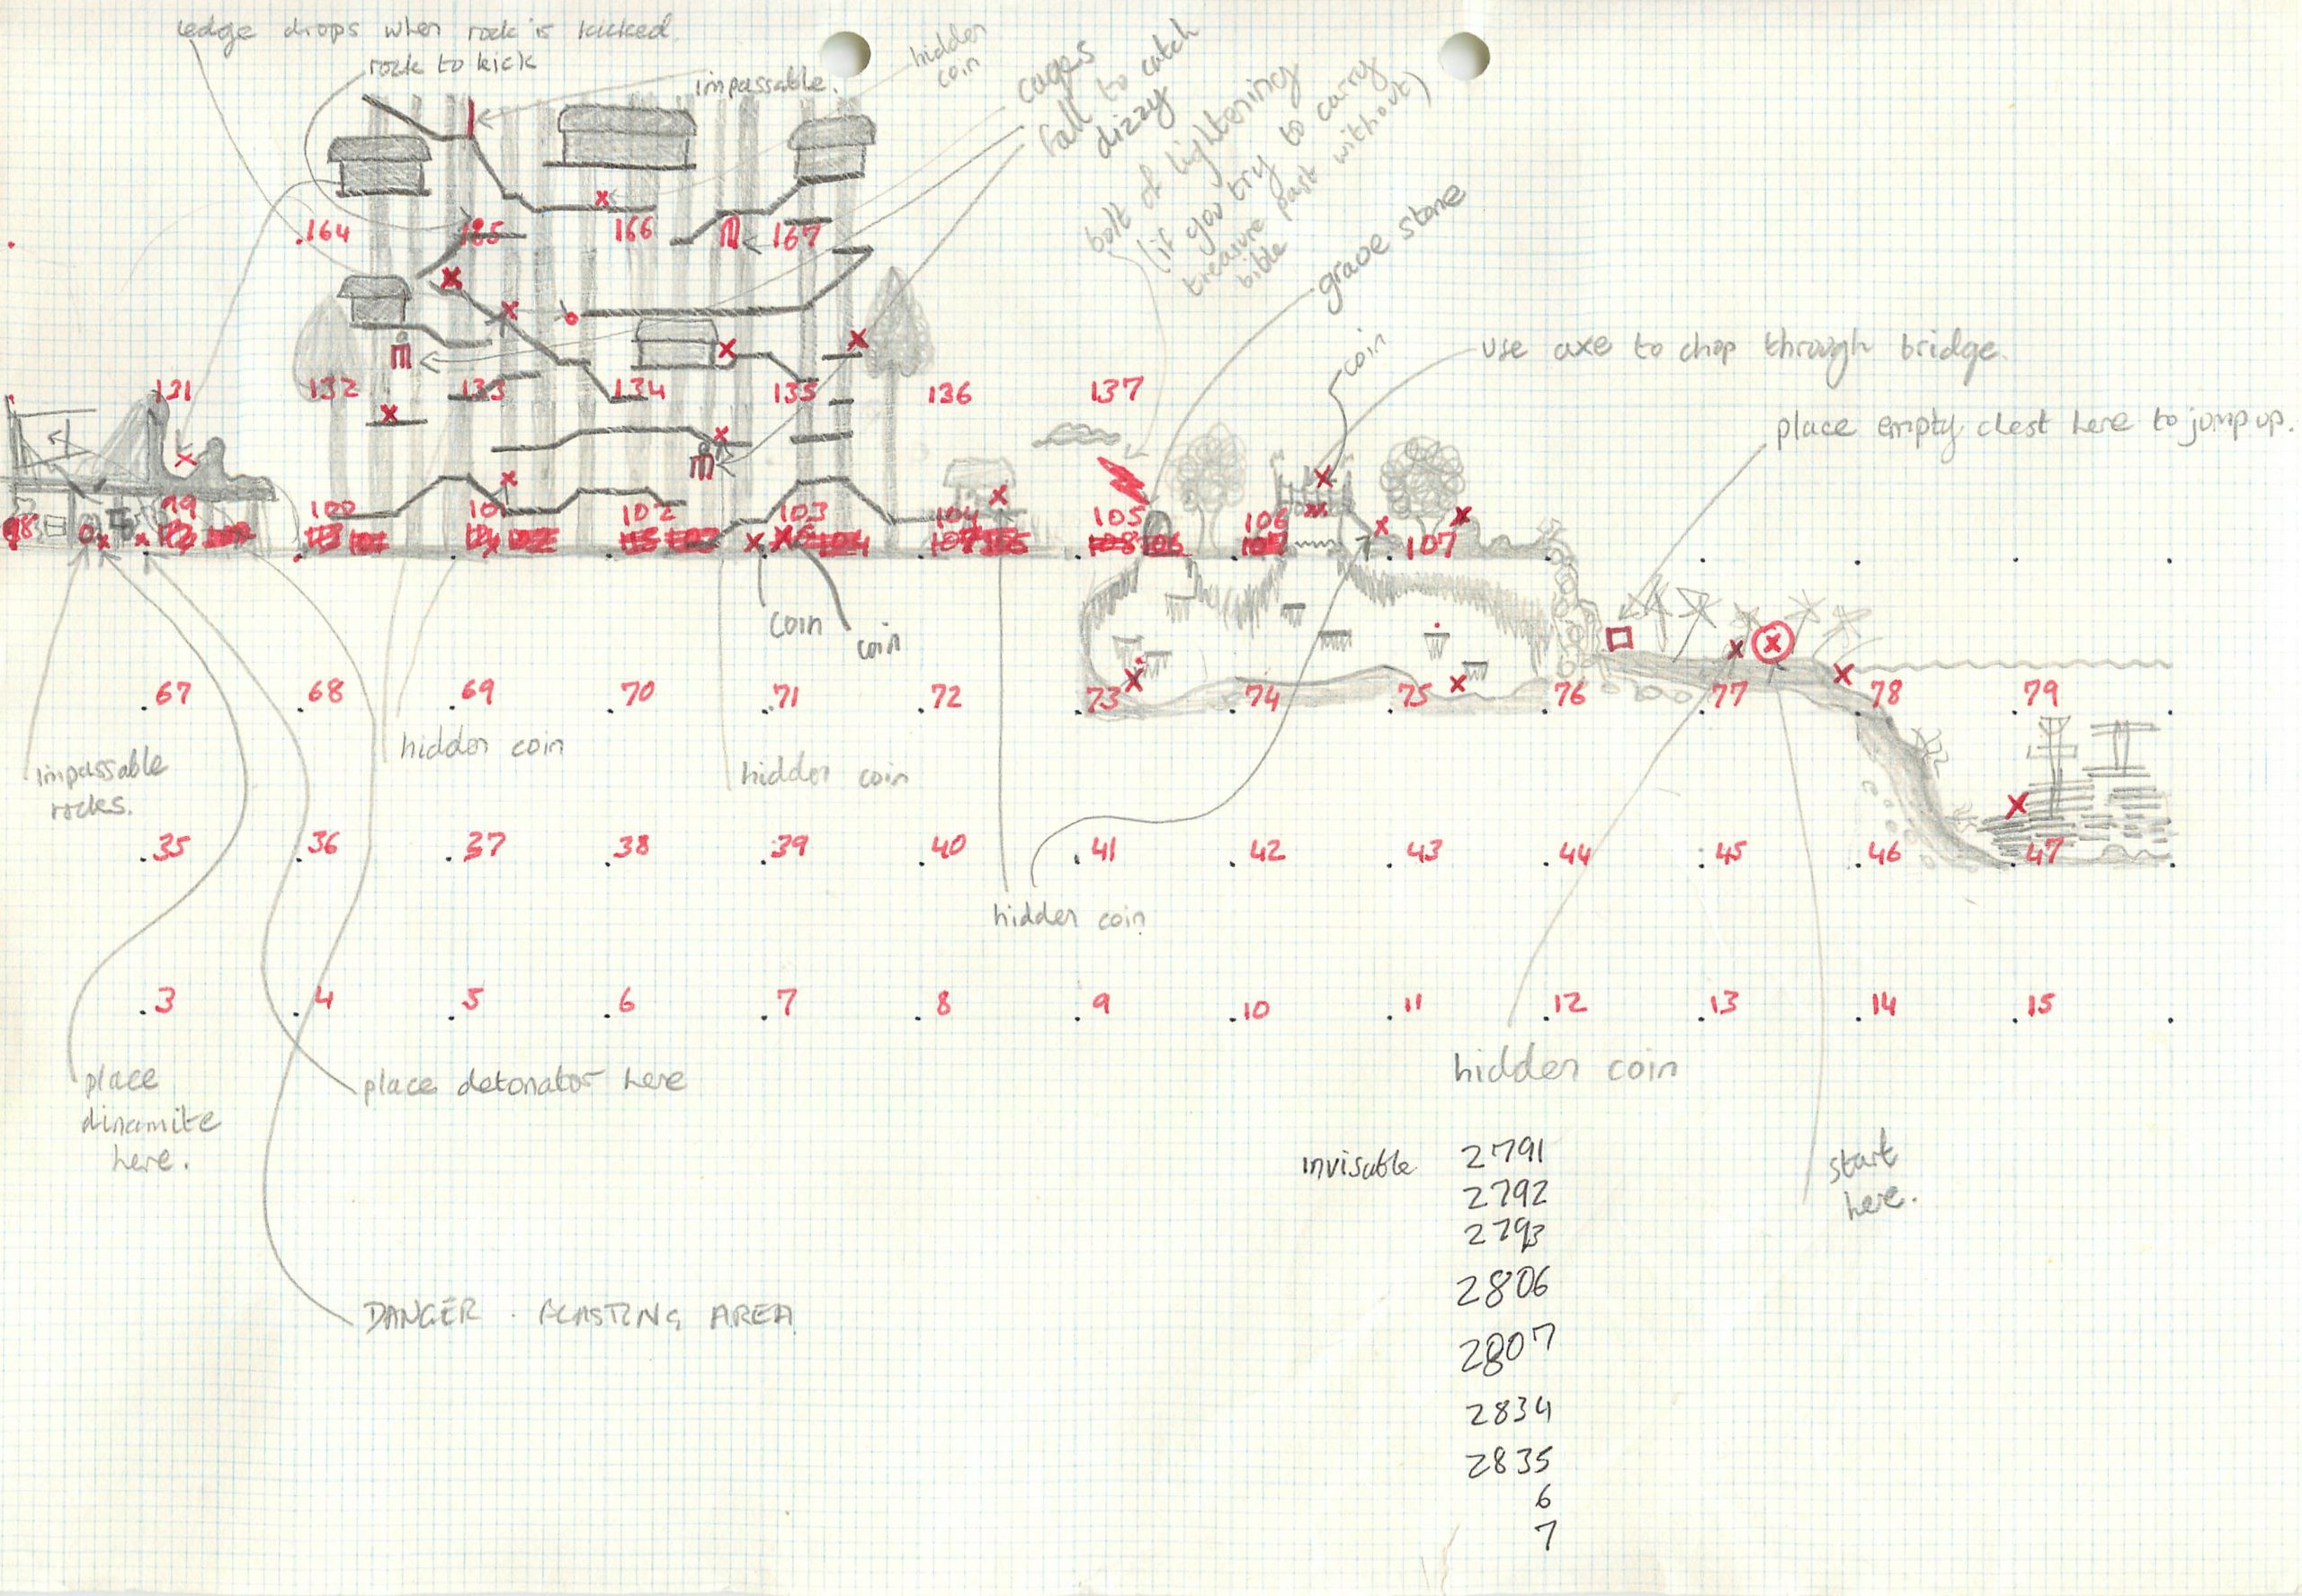 ledge drops when rock is kicked.
rock to kick
impassable.
hidden
coin
cages
fall to catch
dizzy
bolt of lightening
(if you try to carry
treasure past without)
bible
grave stone
coin
use axe to chop through bridge.
place empty chest here to jump up.
164
165
166
167
131
132
133
134
135
136
137
98
99
100
101
102
103
104
105
106
107
coin
coin
67
68
69
70
71
72
73
74
75
76
77
78
79
impassable
rocks.
hidden coin
hidden coin
35
36
37
38
39
40
41
42
43
44
45
46
47
hidden coin
3
4
5
6
7
8
9
10
11
12
13
14
15
place
dinamite
here.
place detonator here
hidden coin
start
here.
DANGER . BLASTING AREA
invisable 2791
2792
2793
2806
2807
2834
2835
6
7